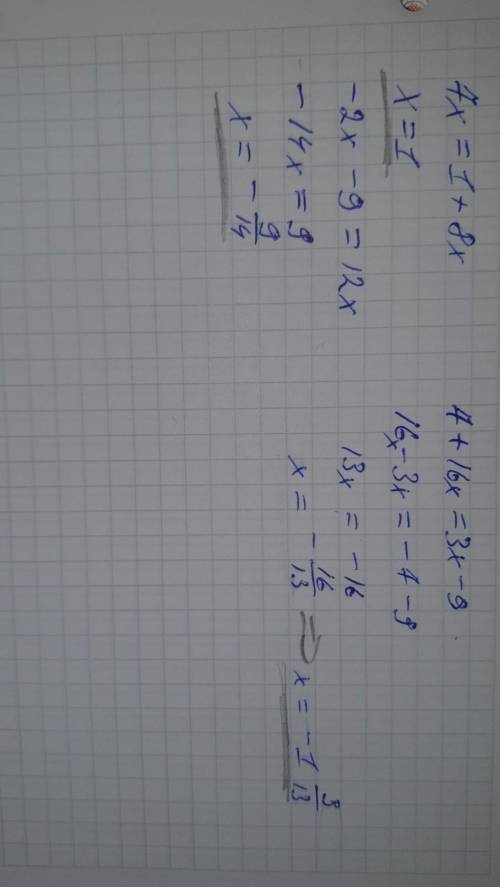 7x = 1 + 8x
x = 1
-2x - 9 = 12x
-14x = 9
x = - 9/14
7 + 16x = 3x - 9
16x - 3x = -7 - 9
13x = -16
x = - 16/13 ⇒ x = -1 3/13